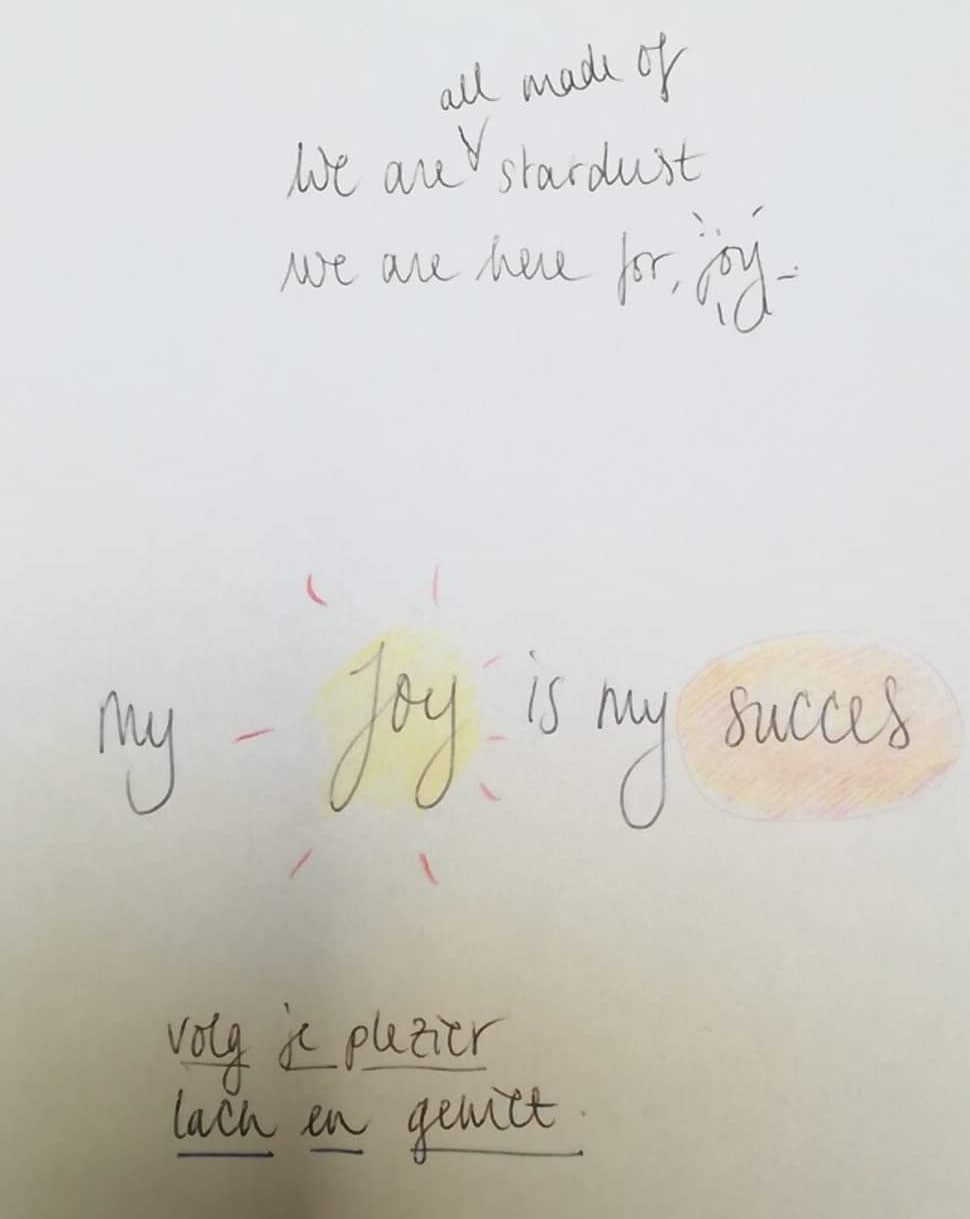 all made of
We are stardust
we are here for joy
My Joy is my succes
volg je plezier
lach en geniet.